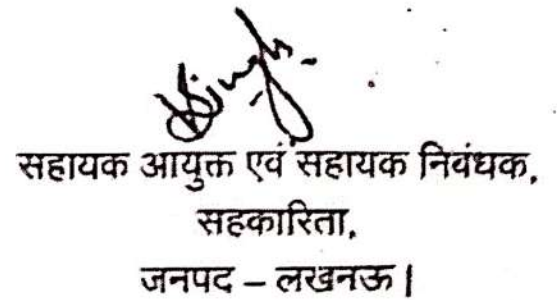 सहायक आयुक्त एवं सहायक निवंधक,
सहकारिता,
जनपद – लखनऊ |